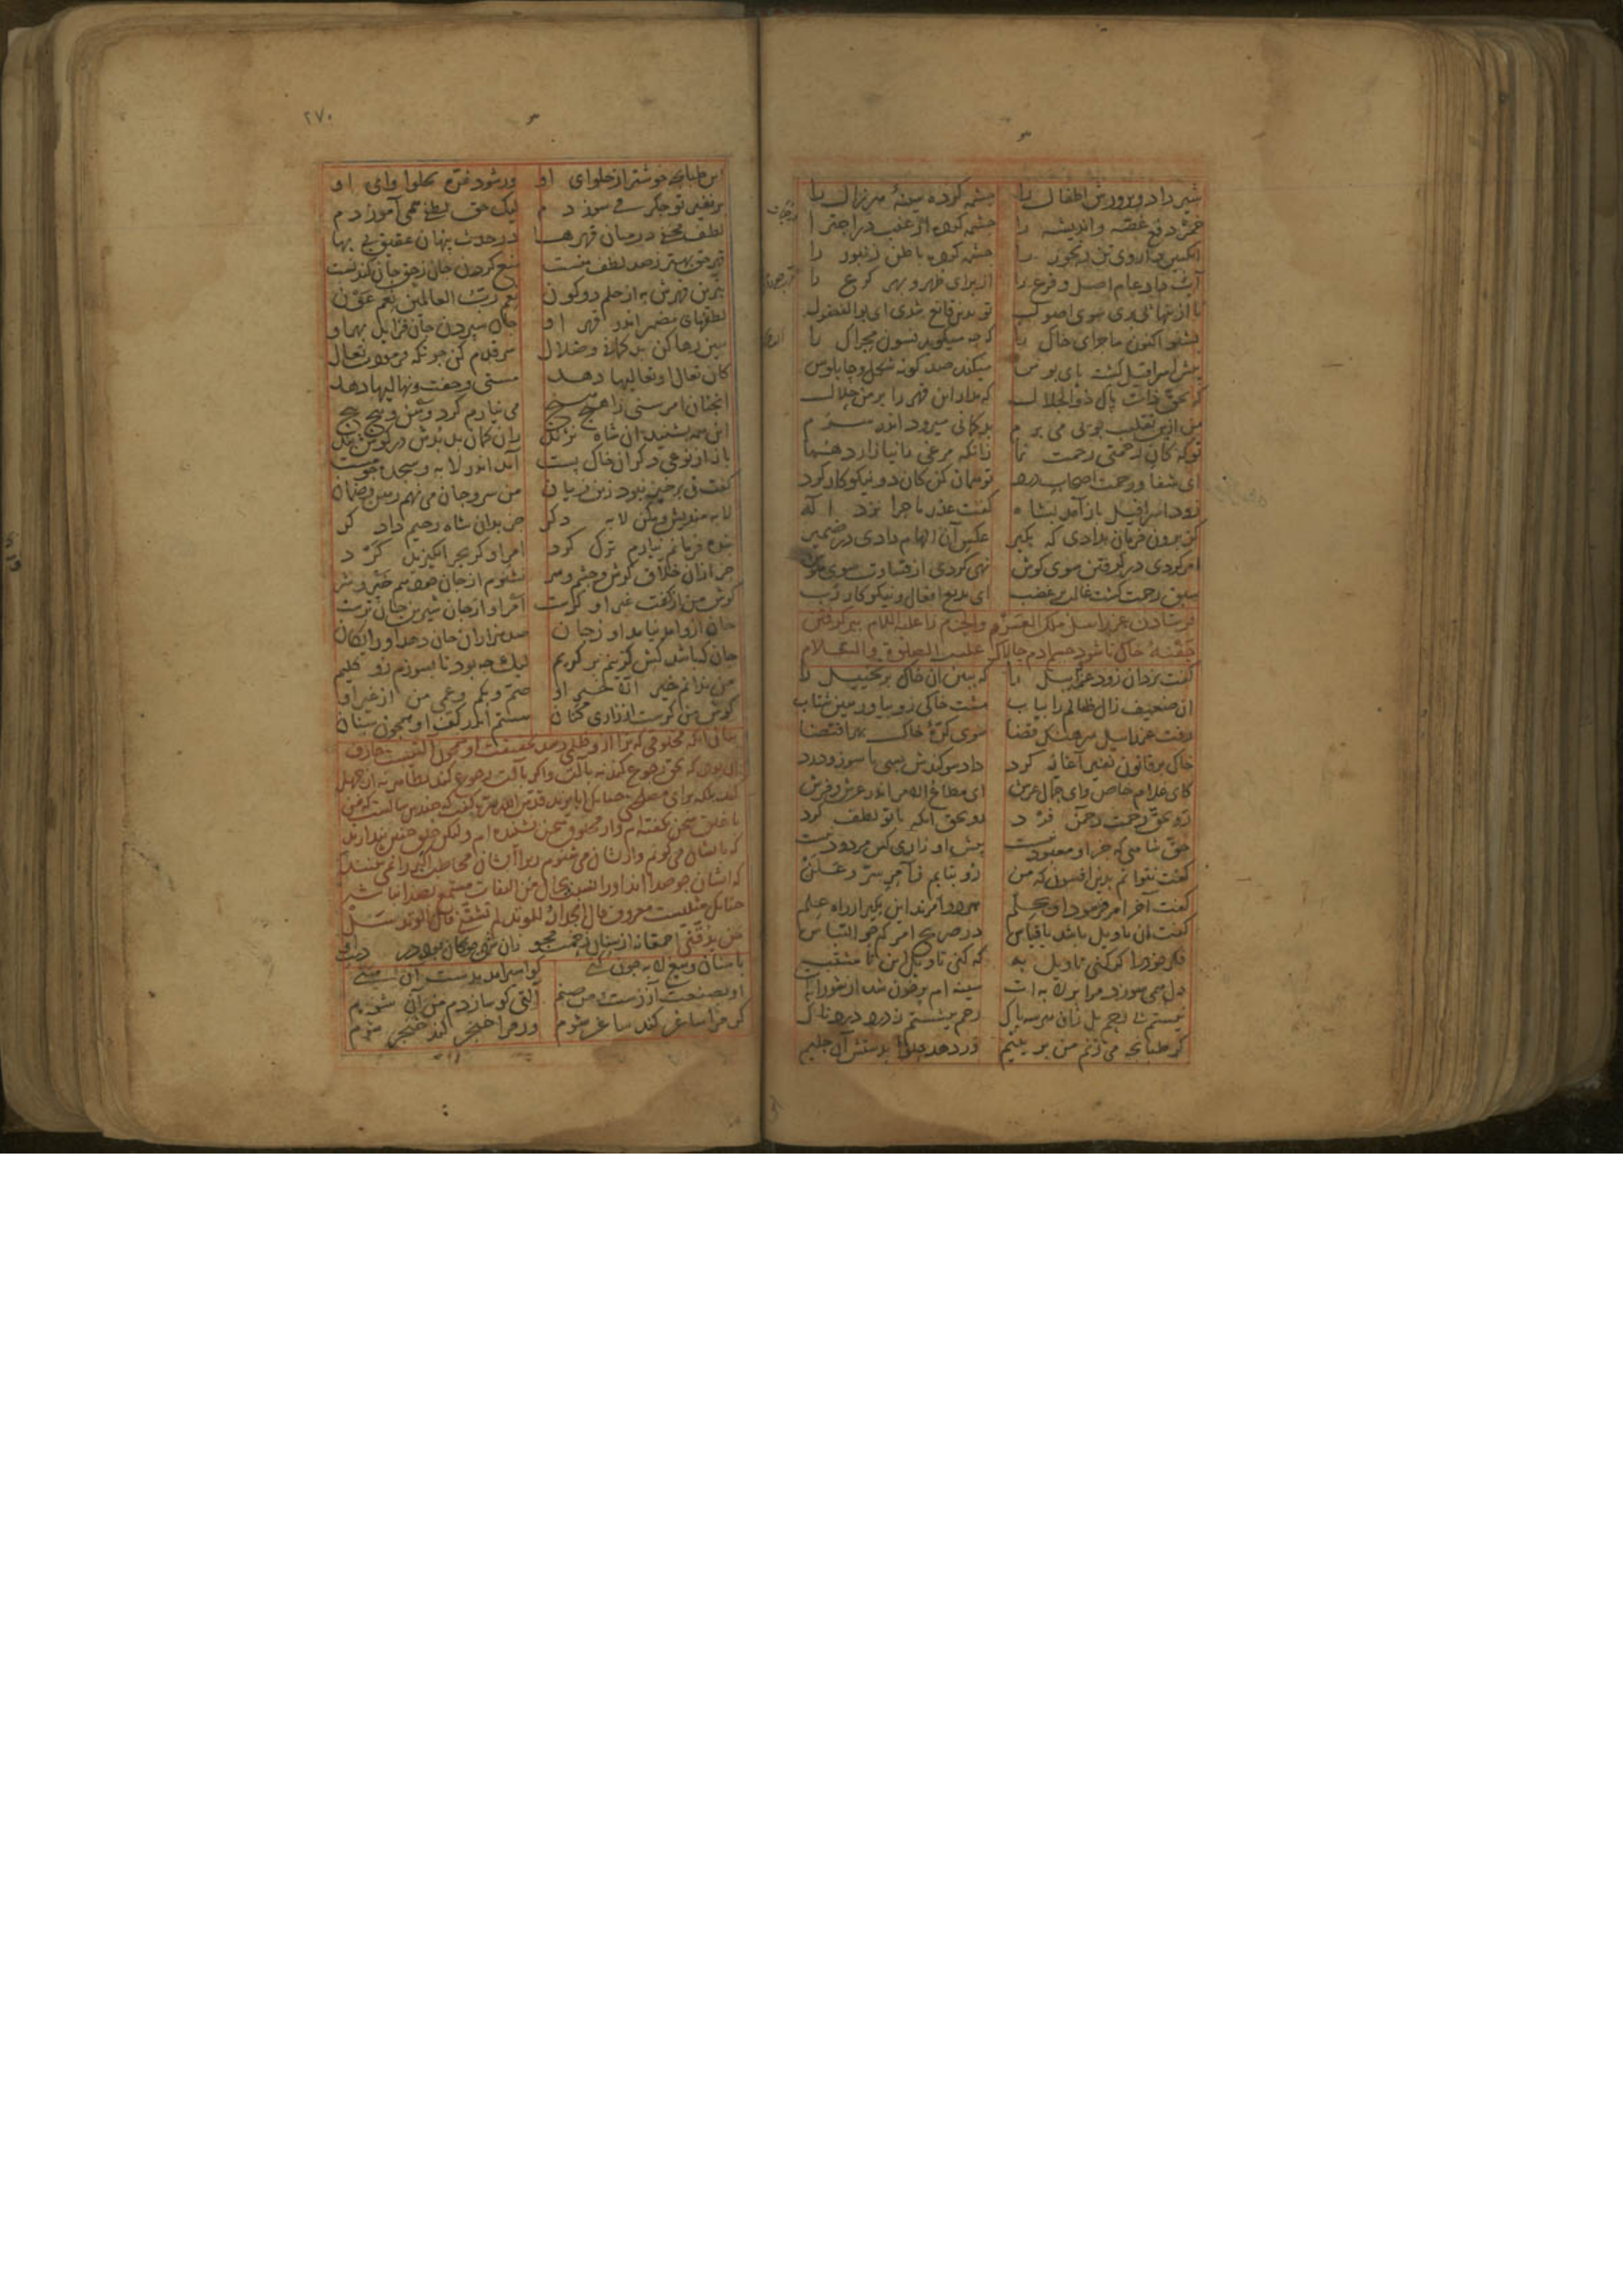 شیر داد و پرورش اطفال را چشمه کرده سینهٔ هر زال را
خمر دفع غصه و اندیشه را چشمه کرده از عنب در اجترا
انگبین داروی تن رنجور را چشمه کرده باطن زنبور را
آب داد عام اصل و فرع را از برای طهر و بهر کرع را
تا ازینها پی بری سوی اصول تو بدین قانع شدی ای بوالفضول
بشنو اکنون ماجرای خاک را که چه میکوید فسون محراک را
پیش اسرافیل کشته بوس میکند صد کونه شکل و چاپلوس
که بحق ذات پاک ذوالجلال که مدار این قهر را بر من حلال
من ازین تقلیب بوئی می برم بدکمانی میرود اندر سرم
تو که کان رحمتی رحمت نما زانکه مرغی را نیازارد هما
ای شفا و رحمت اصحاب درد تو همان کن کان دو نیکوکار کرد
زود اسرافیل باز آمد بشاه کفت عذر ماجرا نزد اله
کز برون فرمان بدادی که بکیر عکس آن الهام دادی در ضمیر
امر کردی در کرفتن سوی کوش نهی کردی از قساوت سوی هوش
سبق رحمت کشت غالب بر غضب ای بدیع افعال و نیکوکار رب
فرستادن عزرائیل ملک العزم والحزم را علیه السلام ببر کرفتن
حفنهٔ خاک تا شود جسم آدم چالاک علیه الصلوة والسلام
کفت یزدان زود عزرائیل را که ببین آن خاک پر تخییل را
آن ضعیف زال ظالم را بیاب مشت خاکی زو بیاور هین شتاب
رفت عزرائیل سرهنک قضا سوی کرهٔ خاک بهر اقتضا
خاک بر قانون نفیر آغاز کرد داد سوکندش بسی با سوز و درد
کای غلام خاص و ای حمال عرش ای مطاع الامر اندر عرش و فرش
رو بحق رحمت رحمن فرد رو بحق آنکه با تو لطف کرد
حق شاهی که جز او معبود نیست پیش او زاری کس مردود نیست
کفت نتوانم بدین افسون که من رو بتابم ز آمر سر و علن
کفت آخر امر فرمود او بحلم هر دو امرند این بکیر از راه علم
کفت آن تاویل باشد یا قیاس در صریح امر کم جو التباس
فکر خود را کر کنی تاویل به که کنی تاویل این نا مشتبه
دل همی سوزد مرا بر لابه ات سینه ام پر خون شد از شورابه
نیستم بی رحم بل زان هر سه پاک رحم بیشستم ز درد دردناک
کر طبانچه می زنم من بر یتیم ور دهد حلوا بدستش آن حلیم
۲۷۰
این طبانچه خوشتر از حلوای او ور شود غره بحلوا وای او
بر نفیر تو جکر می سوزدم لیک حق لطفی همی آموزدم
لطف مخفی در میان قهرها در حدث پنهان عقیق بی بها
قهر حق بهتر ز صد لطف منست منع کردن جان ز حق جان کندنست
بترین قهرش به از حلم دو کون نعم رب العالمین و نعم عون
لطفهای مضمر اندر قهر او جان سپردن جان فزاید بهر او
هین رها کن بدکمانی و ضلال سر قدم کن چونکه فرمودت تعال
کان تعال او تعالیها دهد مستی و جفت و نهالیها دهد
آنچنان امر سنی را هیچ هیچ می نیارم کرد وهن و پیچ پیچ
این همه بشنید آن خاک نژند زان کمان بد بدش در کوش بند
باز از نوعی دکر آن خاک پست آمد اندر لابه و سجده چو مست
کفت نی برخیز نبود زین زیان من سر و جان می نهم رهن و ضمان
لابه مندیش و مکن لابه دکر جز بدان شاه رحیم دادکر
بنده فرمانم نیارم ترک کرد امر او کز بحر انکیزید کرد
جز از آن خلاق کوش و چشم و سر نشنوم از جان خود هم خیر و شر
کوش من از کفت غیر او کرست امر او از جان شیرین جان ترست
جان ازو آمد نیامد او ز جان صد هزاران جان دهد او رایکان
جان که باشد کش کزینم بر کریم کیک چه بود تا بسوزم زو کلیم
من ندانم خیر الا خیر او صم و بکم و عمی من از غیر او
کوش من کرست از زاری کنان مستم اندر کف او همچون سنان
بیان آنکه مخلوقی که ترا ازو ظلمی رسد بحقیقت او همچون آلتیست عارف
آن بود که بحق رجوع کند نه بآلت و اکر بآلت رجوع کند بظاهر نه از جهل
کند بلکه برای مصلحتی چنانکه ابایزید قدس الله سره کفت که چندین سالست که من
با خلق سخن نکفته ام و از مخلوق سخن نشنیده ام ولیکن خلق چنین پندارند
که با ایشان می کویم و از ایشان می شنوم زیرا ایشان مخاطب اکبر را نمی بینند
که ایشان چو صدا اند او را نسبت بحال من التفات مستمع بصدا نباشد
چنانکه مثلیست معروف قال الجدار للوتد لم تشقنی قال الوتد سل
من یدقنی احمقانه از سنان رحمت مجو زان شهی جو کان بود در دست او
با سنان و تیغ لابه چون کنی کو اسیر آمد بدست آن سنی
او بصنعت آزرست و من صنم آلتی کو سازدم من آن شوم
کر مرا ساغر کند ساغر شوم ور مرا خنجر کند خنجر شوم